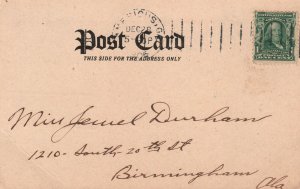 DEC 29
Post Card
THIS SIDE FOR THE ADDRESS ONLY
Miss Jewel Durham
1210 - South - 20th St
Birmingham
Ala